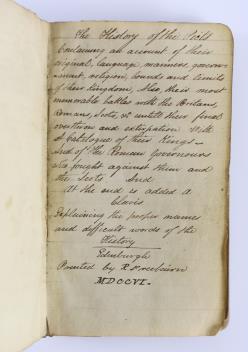 The History of the Picts
Containing an account of their
original, language, manners, govern
-ment, religion, bounds and limits
of their kingdom, Also, their most
memorable battles with the Britains,
Romans, Scots, &c untill their final
overthrow and extirpation. With
A Catalogue of their Kings -
And of the Roman Governours
who fought against them and
the Scots And
At the end is added a
Clavis
Explaining the proper names
and difficult words of the
History
Edinburgh
Printed by R. Freebairn
MDCCVI.